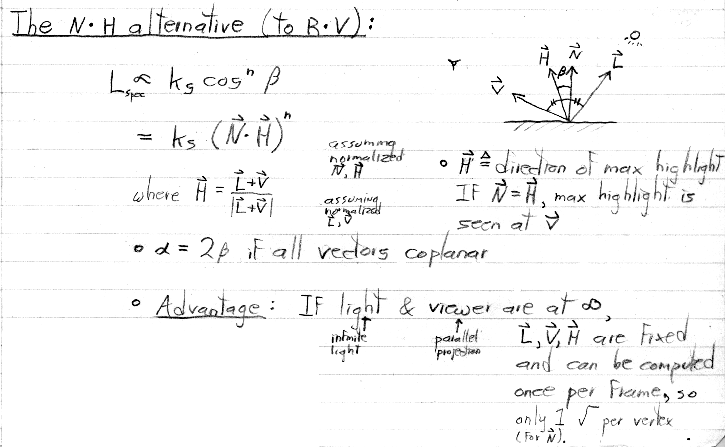 The N·H alternative (to R·V):
L_spec ∝ k_s cos^n β
= k_s (N⃗·H⃗)^n
assuming
normalized
N⃗, H⃗
where H⃗ = L⃗+V⃗ / |L⃗+V⃗|
assuming
normalized
L⃗, V⃗
H⃗ N⃗ L⃗
β
V⃗
• H⃗ ≜ direction of max highlight
If N⃗ = H⃗, max highlight is
seen at V⃗
• α = 2β if all vectors coplanar
• Advantage: If light & viewer are at ∞,
infinite
light
parallel
projection
L⃗, V⃗, H⃗ are fixed
and can be computed
once per frame, so
only 1 √ per vertex
(for N⃗).